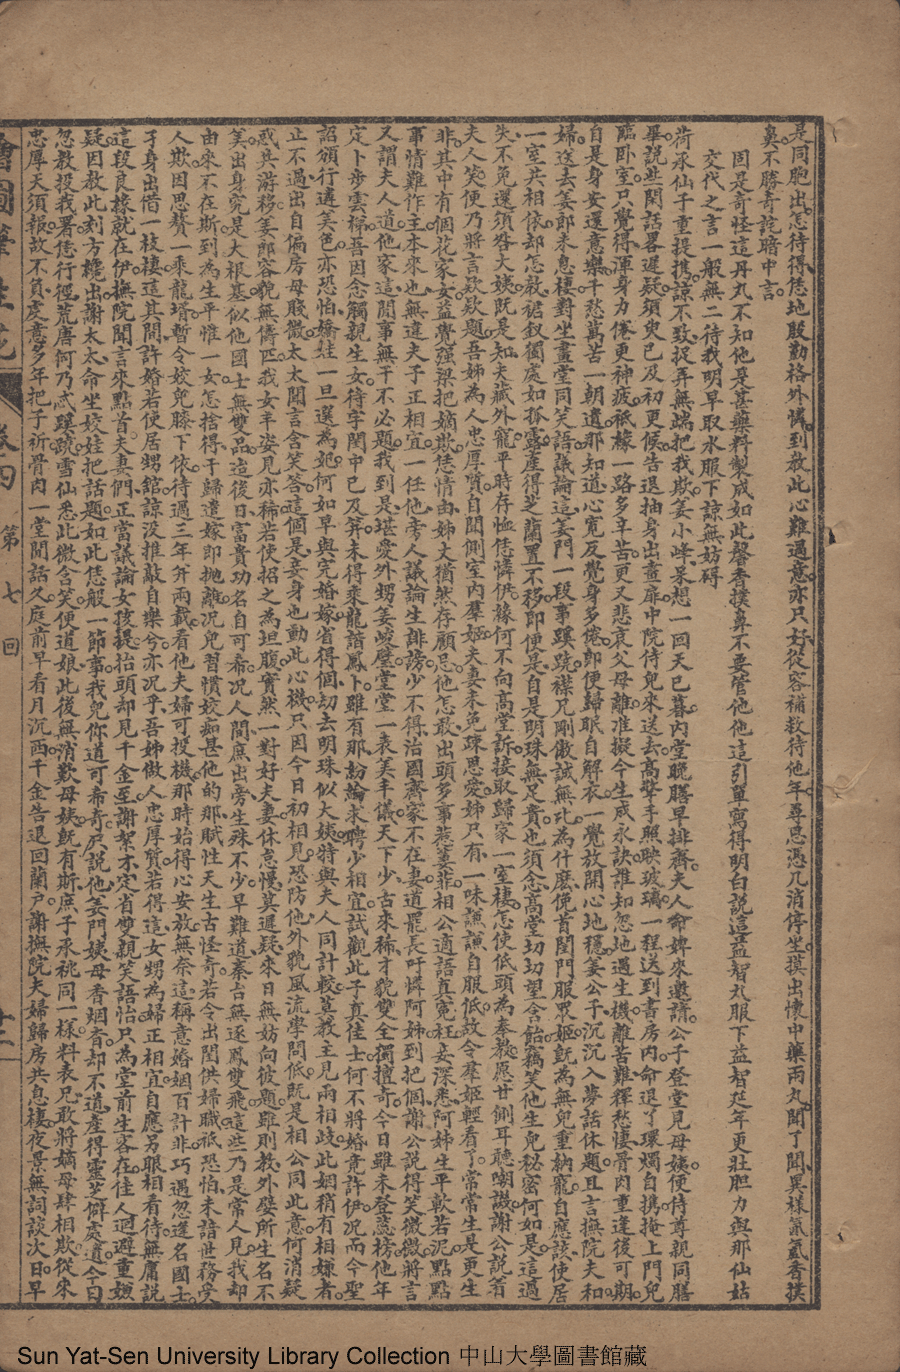 是同胞出怎待得恁地殷勤格外憐到教此心難過意亦只好從容補救待他年尋思憑几消停坐摸出懷中藥兩丸聞了聞異樣氤氳香撲
鼻不勝奇詫暗中言
固是奇怪這丹丸不知他是甚藥料製成如此馨香撲鼻不要管他他這引單寫得明白說這益智丸服下益智延年更壯胆力與那仙姑
交代之言一般無二待我明早取水服下諒無妨碍
荷承仙子重提携諒不致捉弄無端把我欺姜小峰呆想一回天已暮內堂晚膳早排齊夫人命婢來邀請公子登堂見母姨便侍尊親同膳
畢說些閒話畧遲疑須臾已及初更候告退抽身出畫扉中院侍兒來送去高擎手照映玻璃一程送到書房內命退了環燭自携掩上門兒
臨卧室只覺得渾身力倦更神疲祗緣一路多辛苦更又悲哀父母離准擬今生成永訣誰知忽地遇生機離苦難釋愁懷骨肉重逢後可期
自是身安還意樂千愁萬苦一朝遺那知道心寬反覺身多倦即便歸眠自解衣一覺放開心地穩姜公子沉沉入夢話休題且言撫院夫和
婦送去姜郎未息棲對坐畫堂同笑語議論這姜門一段事蹊蹺襟兄剛傲誠無比為什麽俛首閨門服衆姬既為無兒重納寵自應該使居
一室共相依却怎教裙釵獨處如孤㷀產得芝蘭置不移即便是自是明珠無足貴也須念高堂切切望含飴竊笑他生兒秘密何如是這過
失不免還須咎大姨既是知夫藏外寵平時存恤恁憐伊緣何不向高堂訴接取歸家一室棲怎使低頭為奉教愿甘側耳聽嘲譏謝公說著
夫人笑便乃將言欵欵題吾姊為人忠厚質自閙側室內羣姬夫妻未免踈恩愛姊只有一味謙謙自服低故令羣姬輕看了常常生是更生
非其中有個花家女益覺强梁把嫡欺恁情由姊丈猶然存顧忌他怎敢出頭多事惹萋菲相公適語真冤枉妾深悉阿姊生平軟若泥點點
事情難作主本來也無違夫子正相宜一任他旁人議論生誹謗少不得治國齊家不在妻道罷長吁憐阿姊到把個謝公說得笑微微將言
又謂夫人道他家這閒事無干不必題我到是堪愛外甥姜峻壁堂堂一表美丰儀天下少古來稀才貌雙全獨擅奇今日雖未登蕊榜他年
定卜步雲梯吾因念觸親生女待字閨中已及笄未得乘龍諧鳳卜雖有那紛綸求聘少相宜試觀此子真佳士何不將婚竟許伊况而今聖
詔頒行遴美色亦恐怕嬌娃一旦選為妃何如早與完婚嫁省得個刼去明珠似大姨特與夫人同計較莫教主見兩相歧此姻稍有相嫌者
止不過出自偏房母股微太太聞言含笑答這個是妾身也動此心機只因今日初相見恐防他外貌風流學問低既是相公同此意何消疑
或共游移姜郎容貌無儔匹我女丰姿見亦稀若使招之為坦腹實然一對好夫妻休怠慢莫遲疑來日無妨向彼題雖則教外嬖所生名不
美出身究是大根基似他國士無雙品這後日富貴功名自可希况人間庶出旁生殊不少早難道秦台無逐鳳雙飛這些乃是常人見我却
由來不在斯到為生平惟一女怎捨得于歸遣嫁即拋離况兒習慣姣痴甚他的那賦性天生古怪奇若令出閨供婦職祗恐怕未諳世務受
人欺因思贅一乘龍壻暫令姣兒膝下依待過三年并兩載看他夫婦可投機那時始得心安放無奈這稱意婚姻百計非巧遇忽逢名國士
孑身出借一枝棲這其間許婚若便居甥館諒沒推敲自樂兮亦况乎吾姊做人忠厚質若得這女甥為婦正相宜自應另眼相看待無庸說
這段良緣就在伊撫院聞言來點首夫妻們正當議論女孩提抬頭却見千金至謝絮才定省雙親笑語怡只為堂前生客在佳人迴避重嬡
疑因救此刻方纔出謝太太命坐姣娃把話題如此恁般一節事我兒你道可希奇尺說他姜門姨母香烟香却不道產得靈芝僻處遺今日
忽教投我署恁行徑荒唐何乃忒蹊蹺雪仙悉此微含笑便道娘此後無消歎母姨既有斯庶子承祧同一樣料表兄敢將嫡母肆相欺從來
忠厚天須報故不負處意多年把子祈骨肉一堂閒話久庭前早看月沉西千金告退回蘭戶謝撫院夫婦歸房共息棲夜景無詞談次日早
繪圖筆生花 卷四 第七回 廿二
Sun Yat-Sen University Library Collection 中山大學圖書館藏